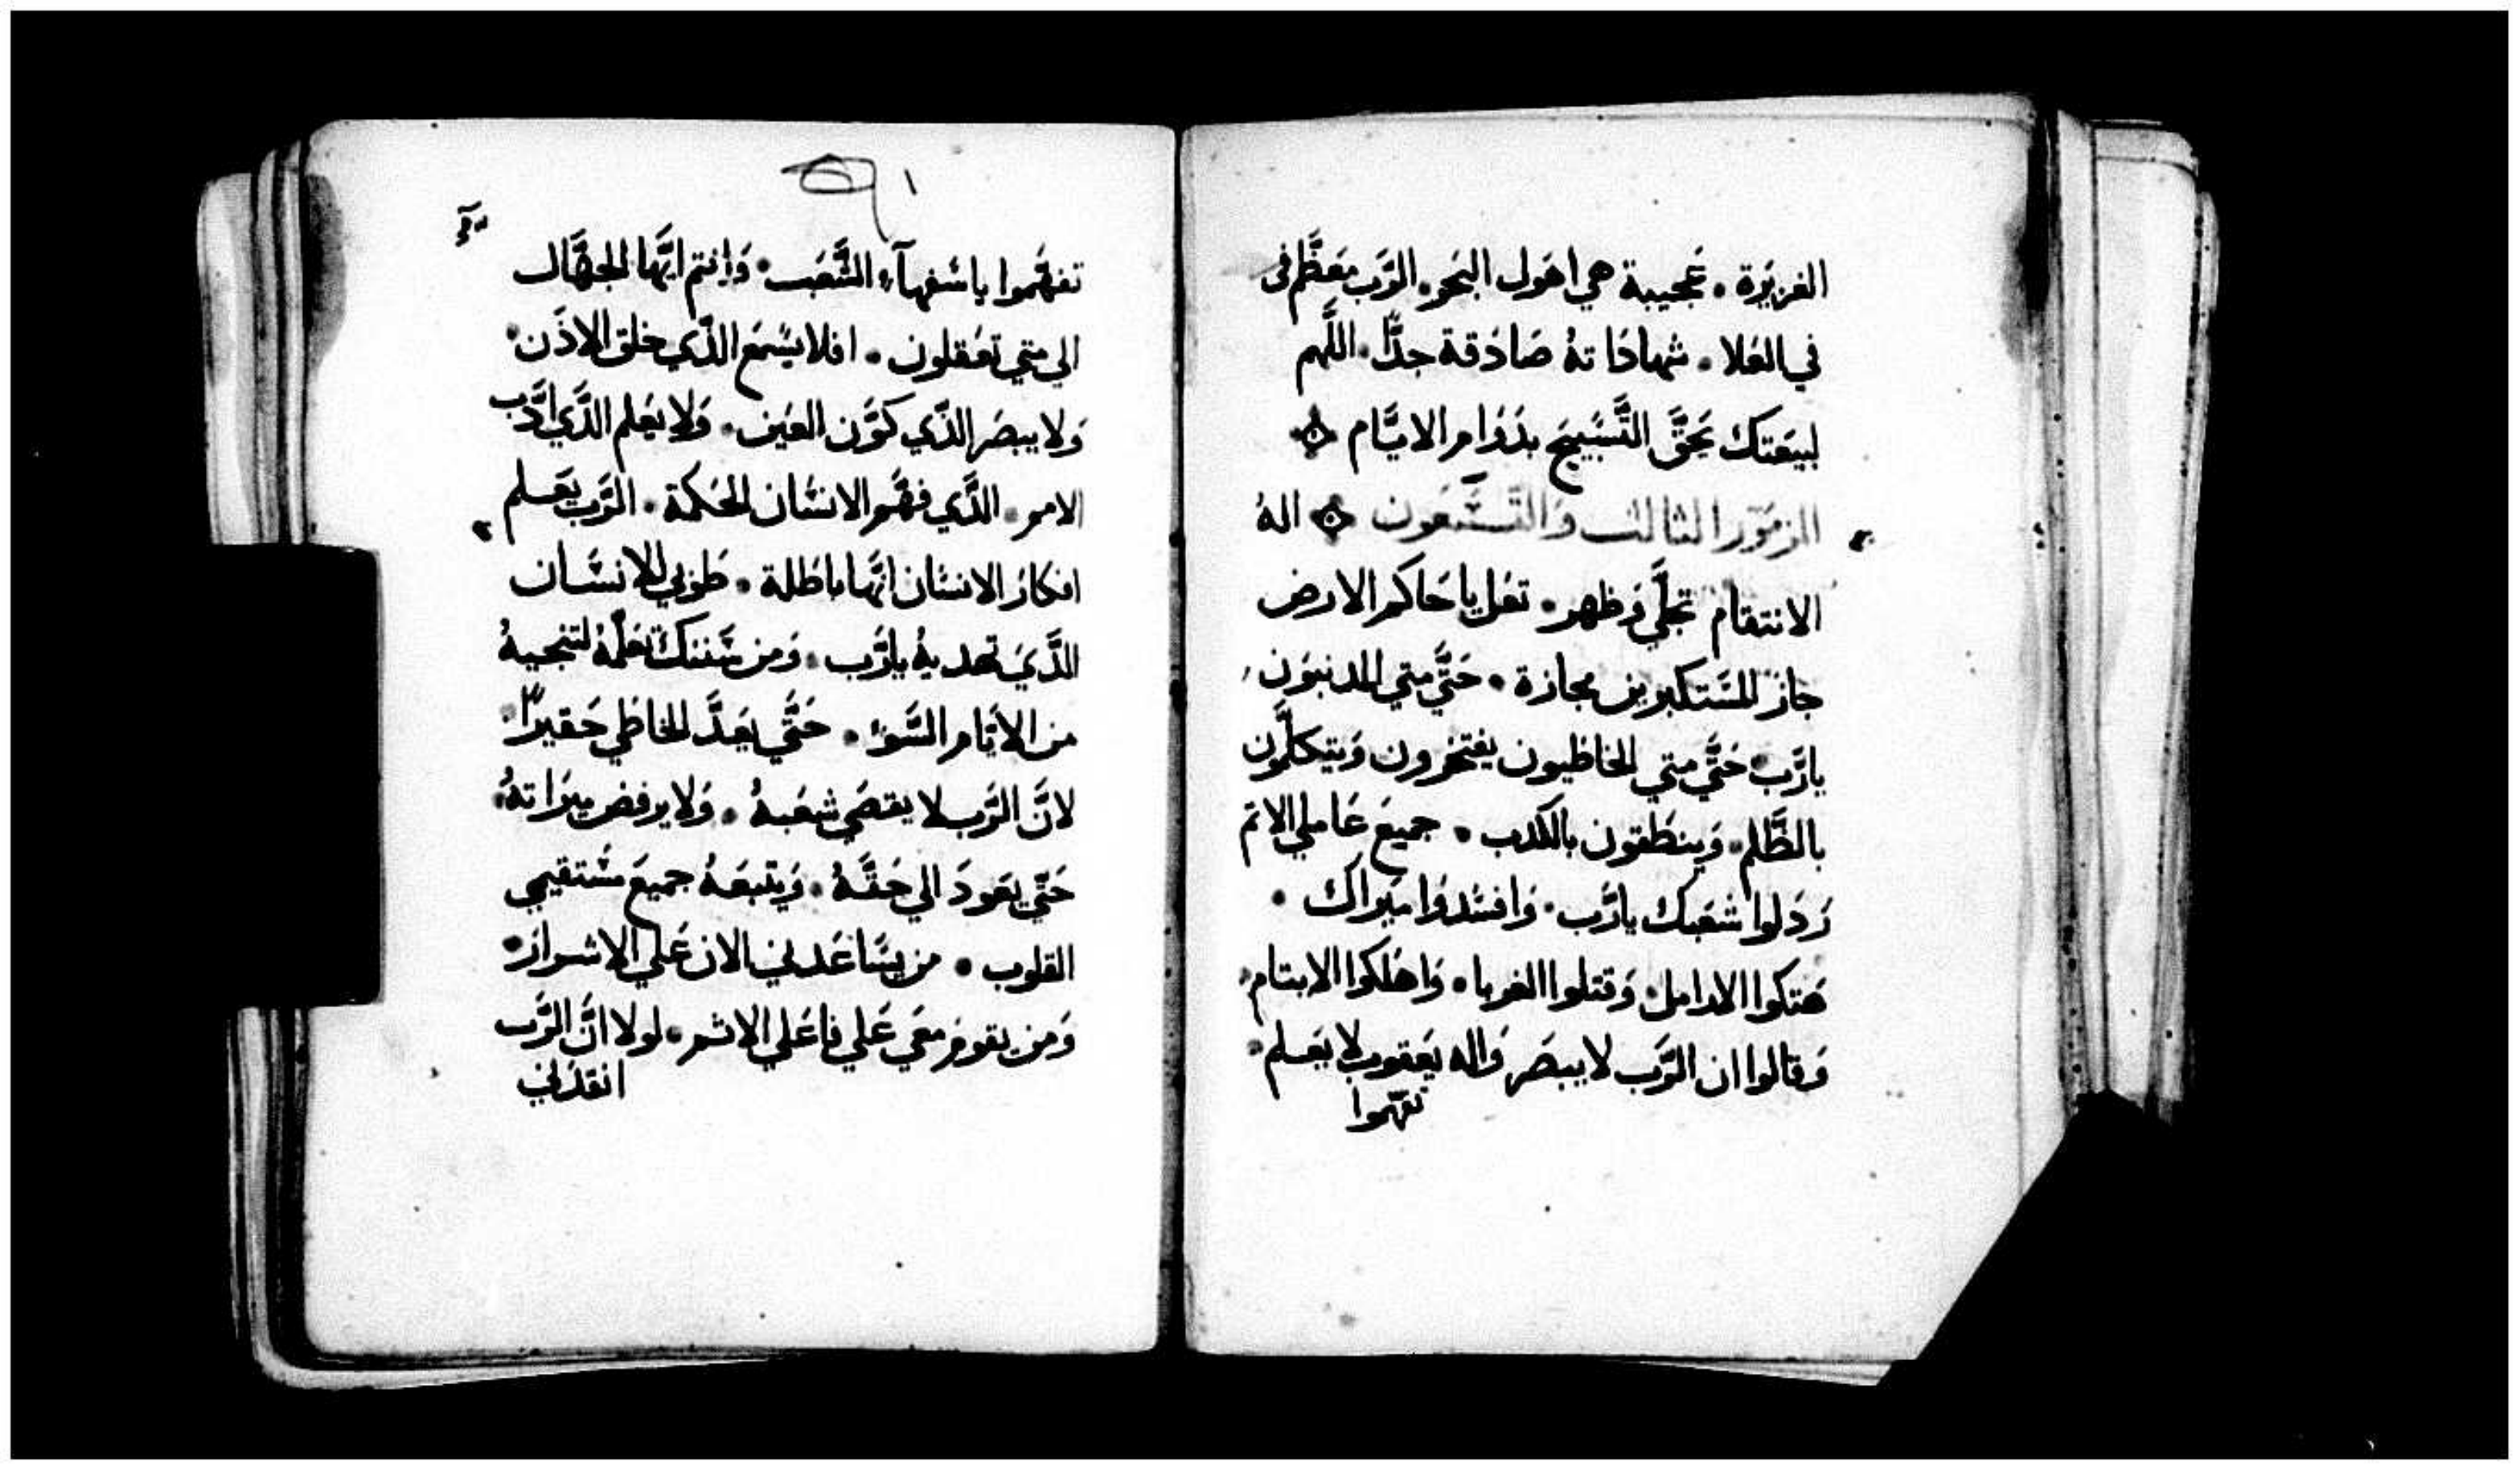 الغزيَرة۰ عَجيبة هي اهَول البَحر۰ الرَّب مَعَظَّم في
في العَلا۰ شهادَاتهُ صَادَقة جدًّا۰ اللَّهم
لبيَعتك يَحقَّ التَّسَبيحَ بدَوَام الايَّام
المزمَور الثالث وَالتَّسَّعَون الهُ
الانتقام تجَلَّي وَظهر۰ تعَل ياحَاكم الارض
جاز المسَتكبرين مجازة۰ حَتَّي متي المدنبَون
يارَّب حَتَّي متي الخاطيون يفتخرون وَيتكلَّمون
بالظَّلم۰ وَينطَقون بالكدب۰ جميعَ عَاملي الاتم
رَدَلوا شعَبك يارَّب۰ وَافسَدوَا ميَراتك۰
هَتكوا الارامل۰ وَقتلوا الغربا۰ وَاهَلكوا الايتام
وَقالوا ان الرَّب لايبصَر وَاله يَعقوب لا يعَلم۰
تفهّموا
تفهَّموا ياسَفهآء الشَّعَب۰ وَانتم ايَّها الجهَّال
الي متي تعَقلون۰ افلا يسَمَع الذَّي خلق الاذَن۰
وَلا يبصَر الذَّي كوَّن العَين۰ وَلا يعَلم الذَّي ادَّب
الامم۰ الذَّي فهَّم الانسَان الحَكمة۰ الرَّب يعَلم
افكار الانسَان انَّها باطَلة۰ طَوبي للانسَان
الذَّي تهَديهُ يارَّب۰ وَمن سَّننك تعَلّمهُ لتنجيهُ
من الايَّام السَّوء۰ حَتَّي يعَدَّ للخاطَي حَقيرًا
لانَّ الرَّب لا يقصَي شعَبهُ۰ وَلا يرفض ميَراتهُ
حَتَّي يعَودَ الي حَقَّهُ۰ وَيتبعَهُ جميعَ مسَتقيمي
القلوب۰ من يسَاعَدني الان عَلي الاشرار
وَمن يقوم معَي عَلي فاعَلي الاثم۰ لولا انَّ الرَّب
انقدَني